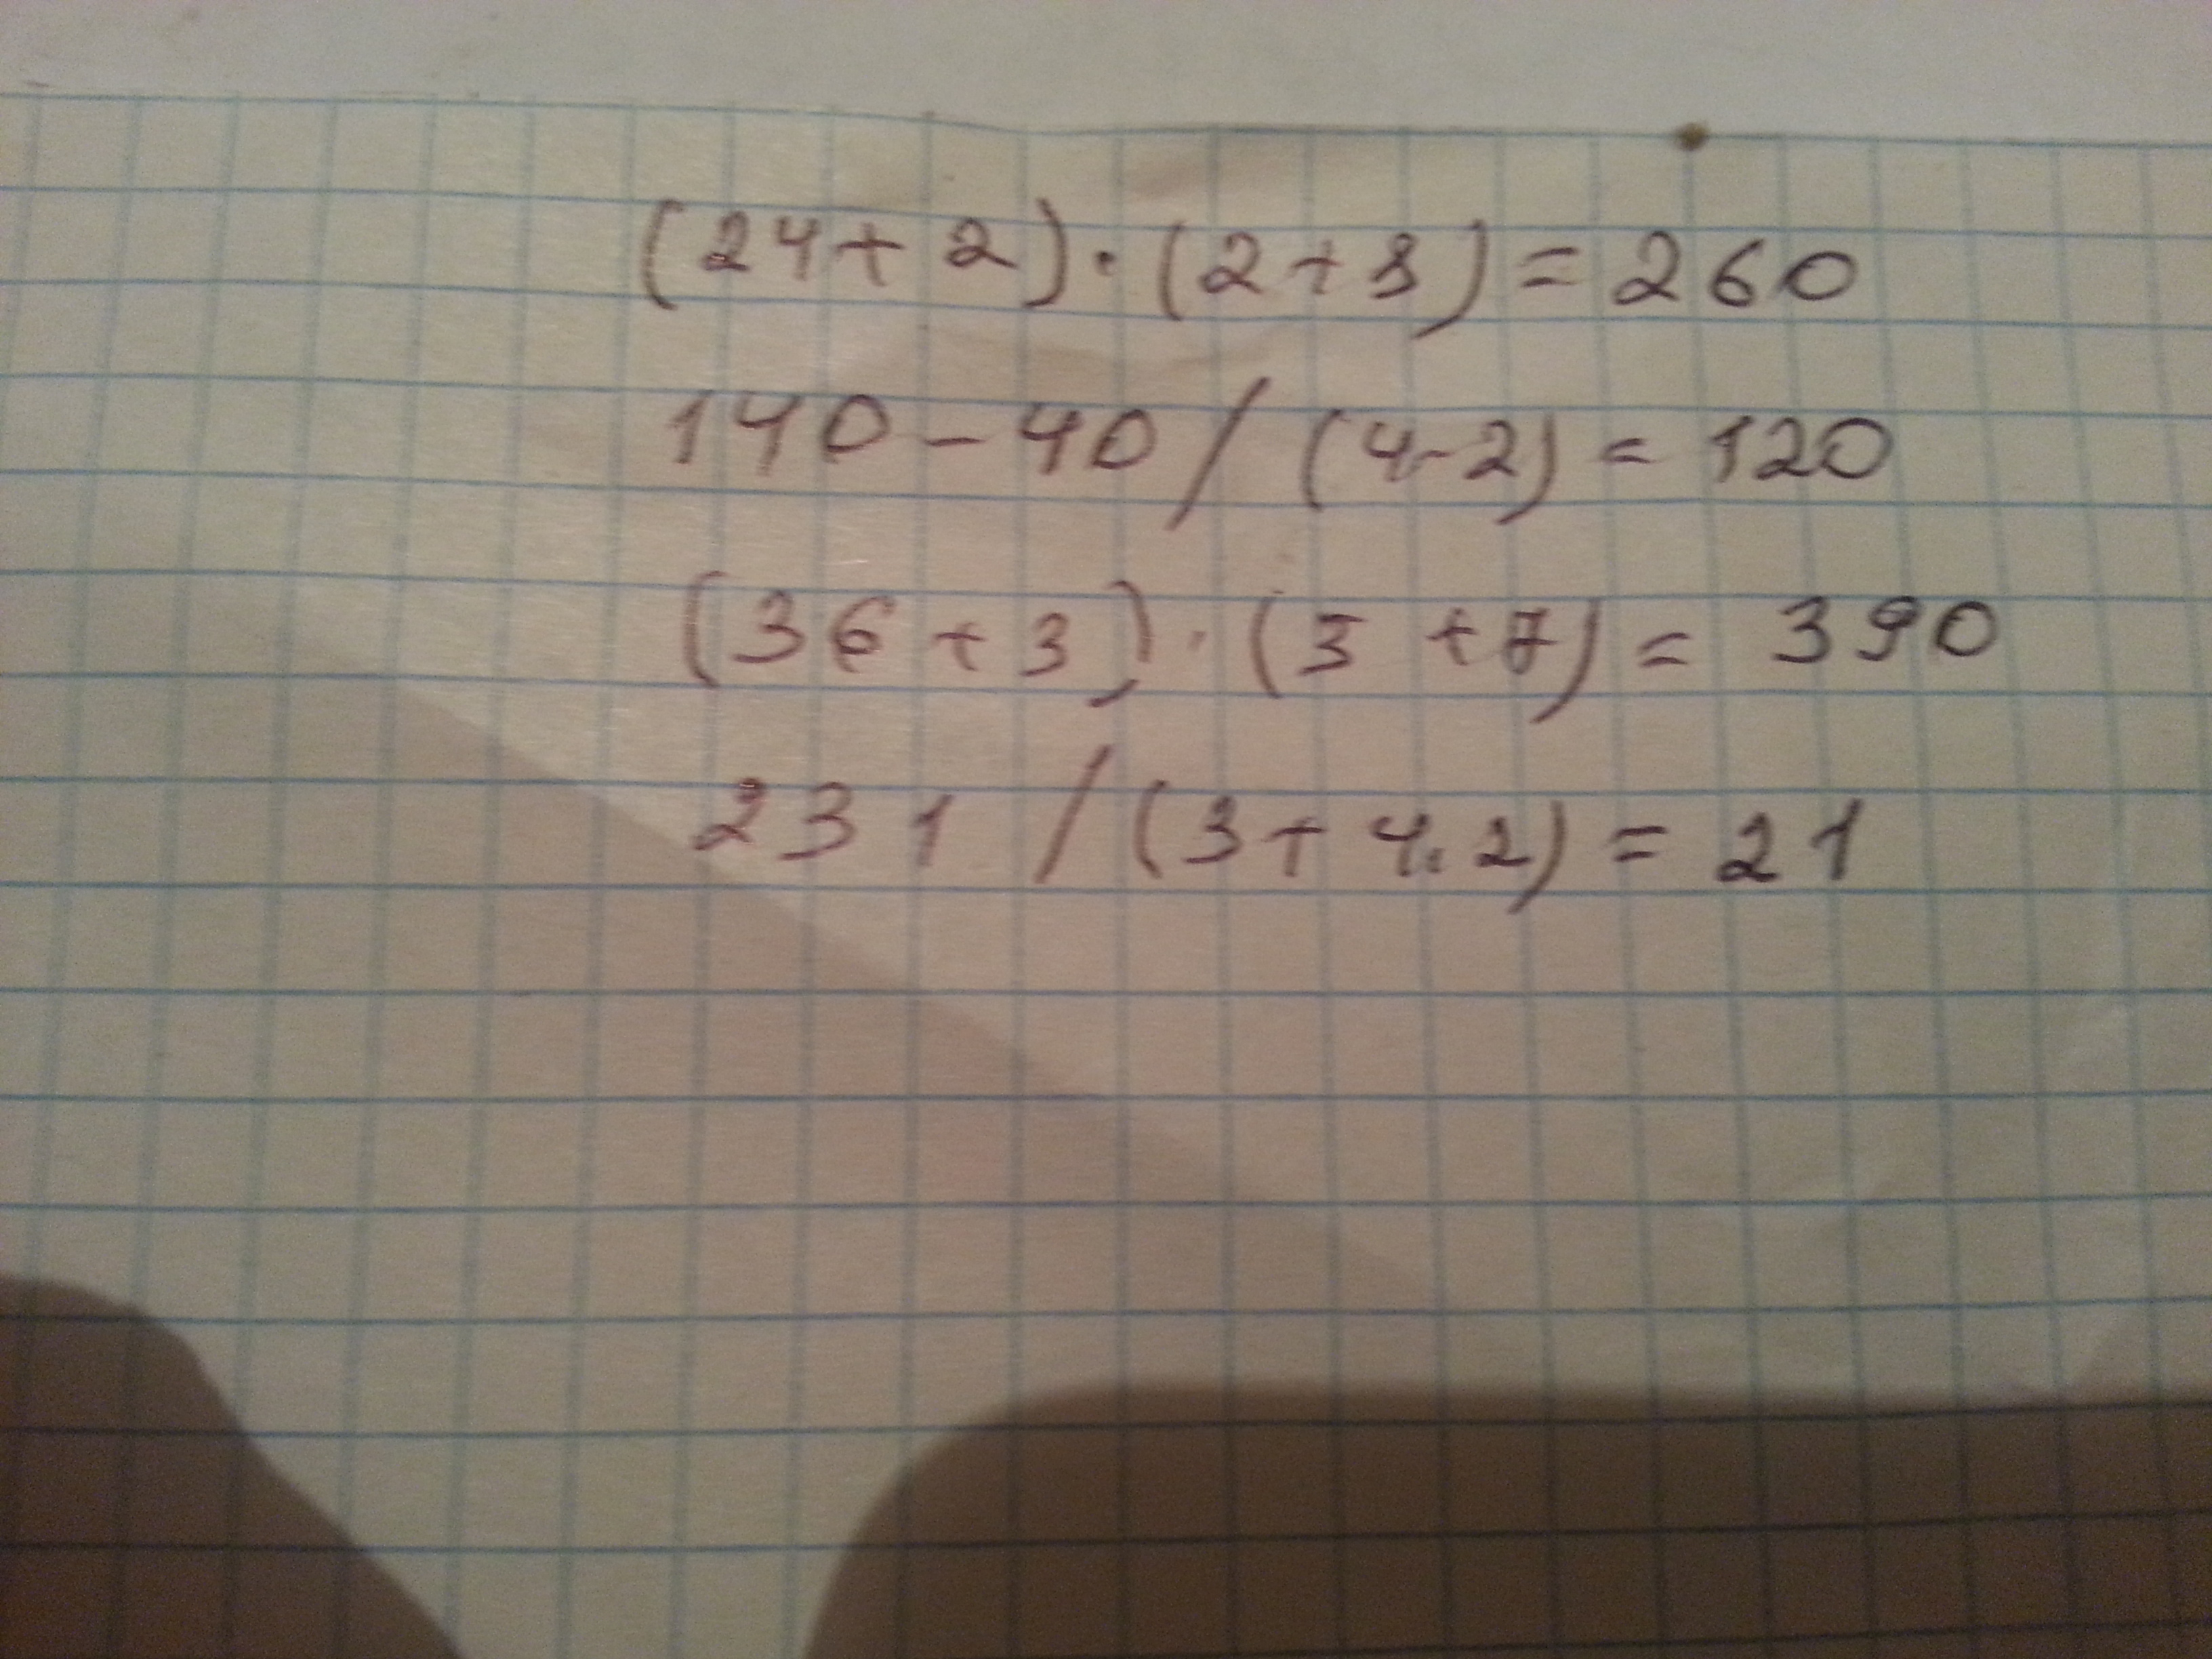 (24+2)·(2+8)=260
140-40/(4-2)=120
(36+3)·(3+7)=390
231/(3+4·2)=21